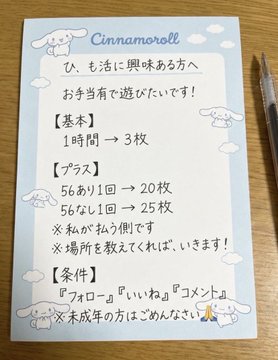 Cinnamoroll
ひ、も活に興味ある方へ
お手当有で遊びたいです!
【基本】
1時間 → 3枚
【プラス】
56あり1回 → 20枚
56なし1回 → 25枚
※私が払う側です
※場所を教えてくれれば、いきます!
【条件】
『フォロー』『いいね』『コメント』
※未成年の方はごめんなさい🙏